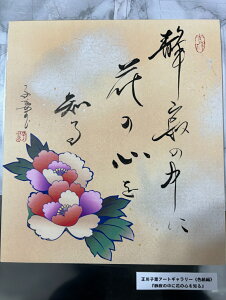 静寂の中に
花の心を
知る
子葉
王貝子葉アートギャラリー(色紙編)
『静寂の中に花の心を知る』